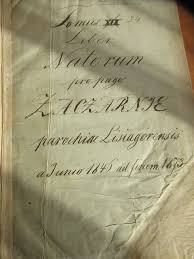 Tomus XIX 24
Liber
Natorum
pro pago
ZACZARNIE
parochiae Lisiagorensis
a Junio 1845 ad finem 1873